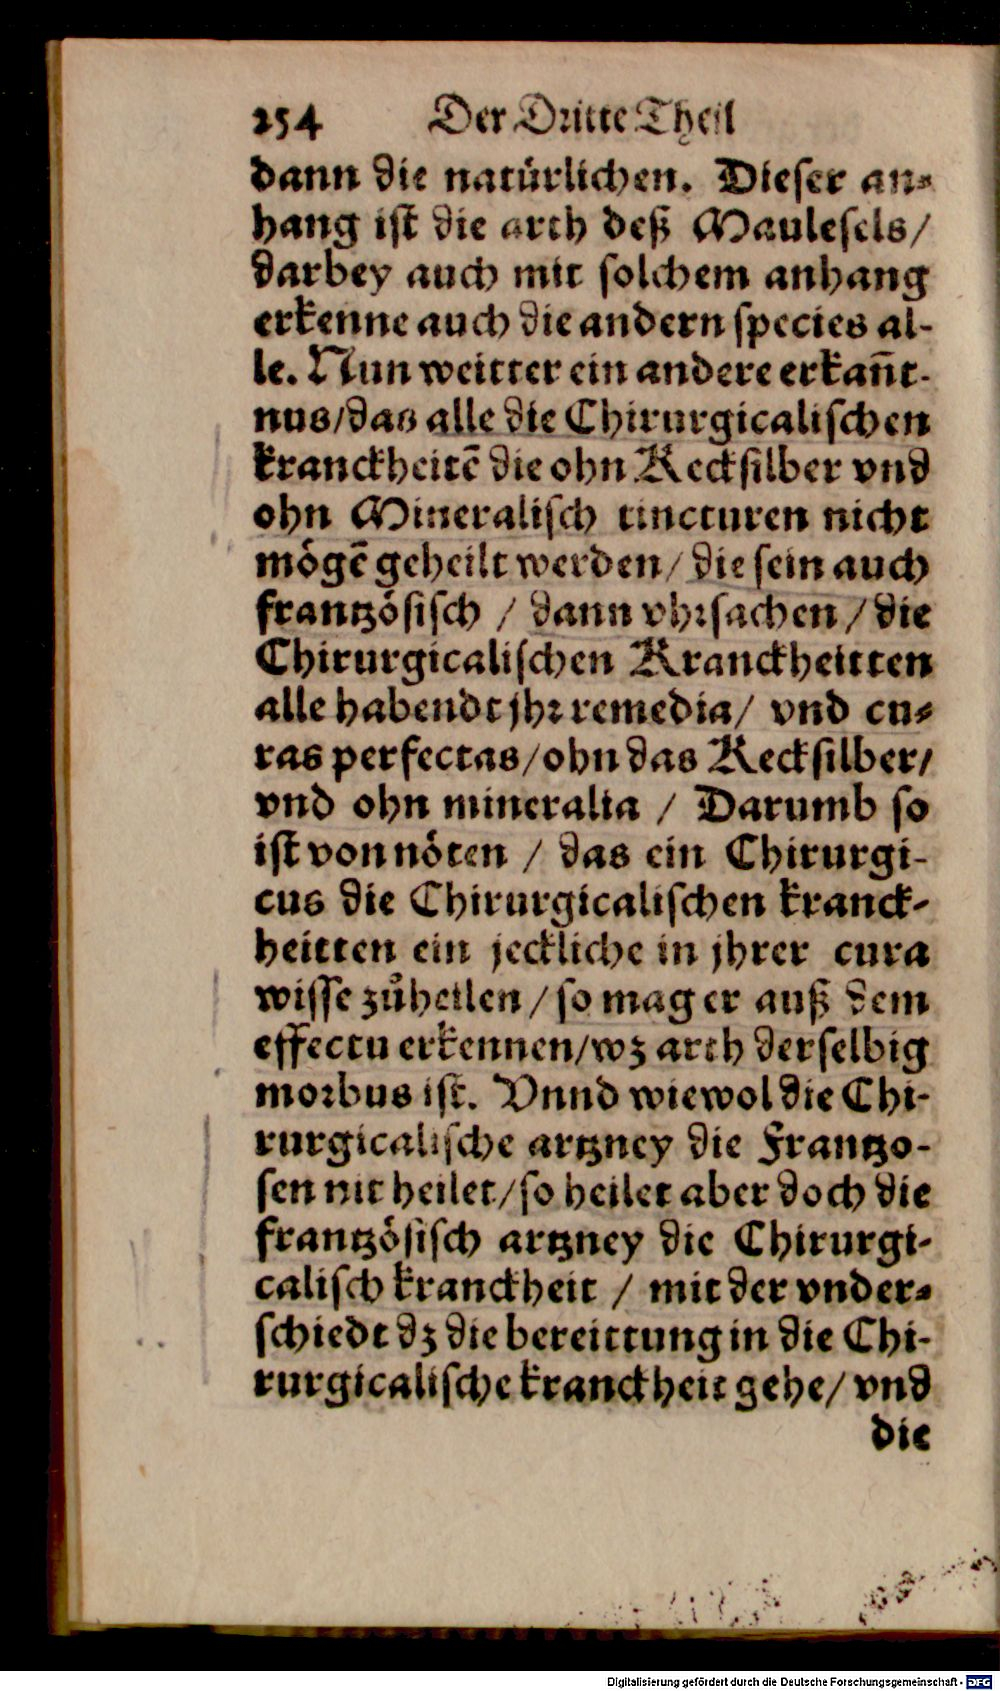 254 Der Dritte Theil
dann die natürlichen. Dieser an-
hang ist die arth deß Maulesels/
darbey auch mit solchem anhang
erkenne auch die andern species al-
le. Nun weitter ein andere erkañt-
nus/das alle die Chirurgicalischen
kranckheitẽ die ohn Kecksilber vnd
ohn Mineralisch tincturen nicht
mögẽ geheilt werden/ die sein auch
frantzösisch / dann vhrsachen / die
Chirurgicalischen Kranckheitten
alle habendt jhr remedia/ vnd cu-
ras perfectas/ohn das Kecksilber/
vnd ohn mineralia / Darumb so
ist von nöten / das ein Chirurgi-
cus die Chirurgicalischen kranck-
heitten ein jeckliche in jhrer cura
wisse zůheilen / so mag er auß dem
effectu erkennen/wz arth derselbig
morbus ist. Vnnd wiewol die Chi-
rurgicalische artzney die Frantzo-
sen nit heilet/so heilet aber doch die
frantzösisch artzney die Chirurgi-
calisch kranckheit / mit der vnder-
schiedt dz die bereittung in die Chi-
rurgicalische kranckheit gehe/ vnd
die
Digitalisierung gefördert durch die Deutsche Forschungsgemeinschaft - DFG